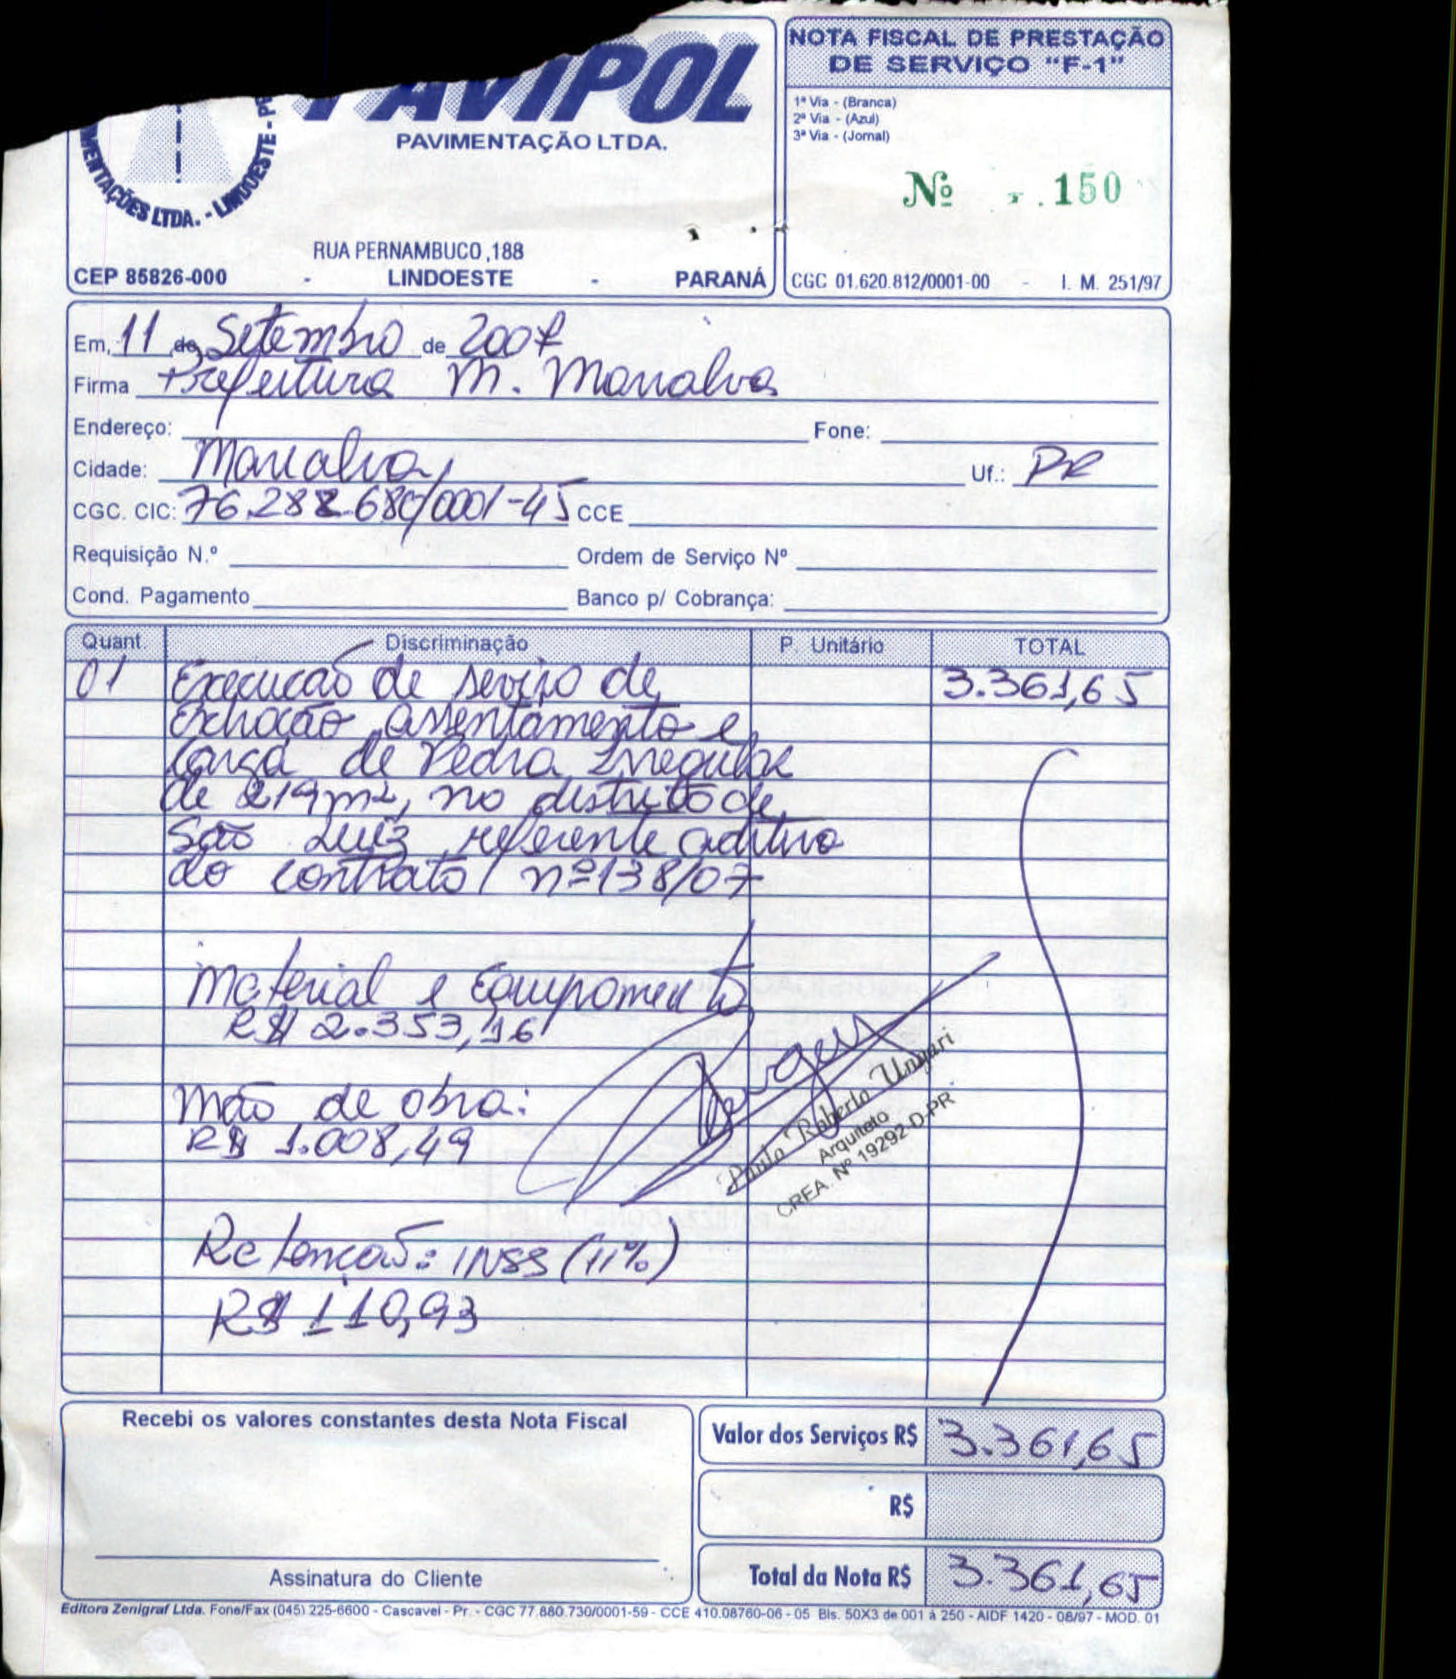 PAVIPOL
PAVIMENTAÇÃO LTDA.
MENTAÇÕES LTDA. - LINDOESTE - P
RUA PERNAMBUCO ,188
CEP 85826-000 - LINDOESTE - PARANÁ
NOTA FISCAL DE PRESTAÇÃO
DE SERVIÇO "F-1"
1ª Via - (Branca)
2ª Via - (Azul)
3ª Via - (Jornal)
Nº 150
CGC 01.620.812/0001-00 - I. M. 251/97
Em, 11 de Setembro de 2007
Firma Prefeitura M. Marialva
Endereço: Fone:
Cidade: Marialva Uf.: PR
CGC. CIC: 76.282.680/0001-45 CCE
Requisição N.º Ordem de Serviço Nº
Cond. Pagamento Banco p/ Cobrança:
Quant. Discriminação P. Unitário TOTAL
01 Execução de serviço de 3.361,65
extração, assentamento e
carga de Pedra Irregular
de 219m², no distrito de
São Luiz referente aditivo
do contrato nº 138/07
Material e Equipamento
R$ 2.353,16
Mão de obra:
R$ 1.008,49
Paulo Roberto Ungari
Arquiteto
CREA. Nº 19292-D-PR
Retenção: INSS (11%)
R$ 110,93
Recebi os valores constantes desta Nota Fiscal
Assinatura do Cliente
Valor dos Serviços R$ 3.361,65
R$
Total da Nota R$ 3.361,65
Editora Zenigraf Ltda. Fone/Fax (045) 225-6600 - Cascavel - Pr. - CGC 77.880.730/0001-59 - CCE 410.08760-06 - 05 Bls. 50X3 de 001 à 250 - AIDF 1420 - 08/97 - MOD. 01